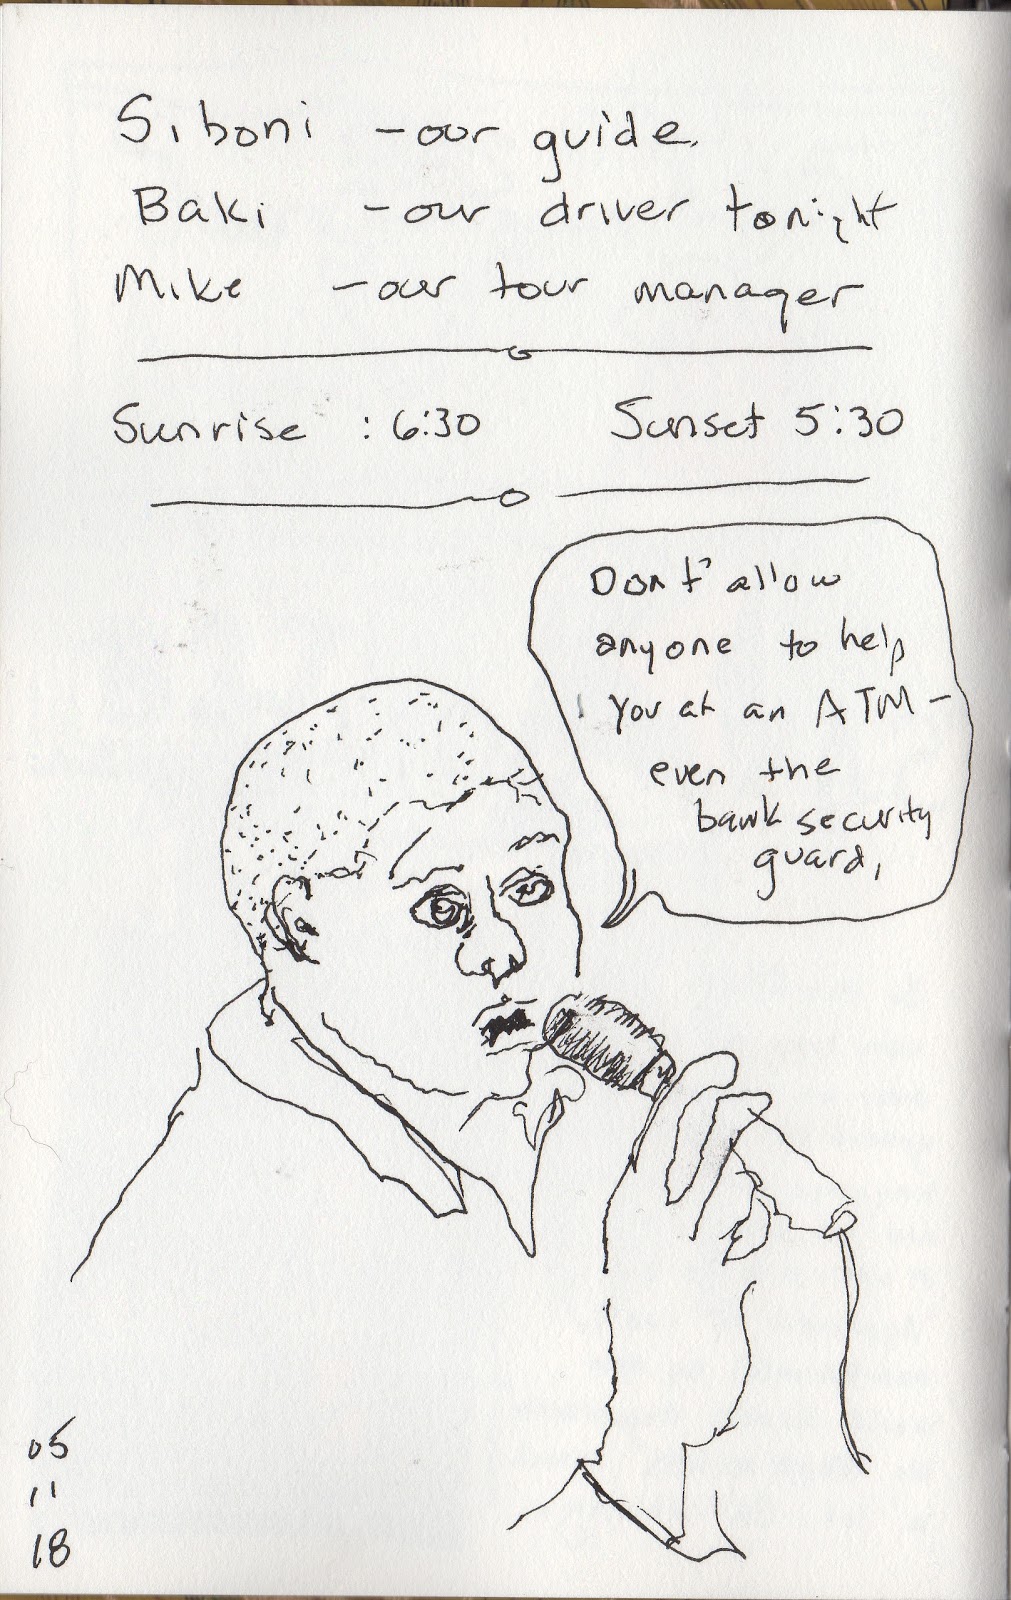 Siboni - our guide.
Baki - our driver tonight
Mike - our tour manager
Sunrise : 6:30 Sunset 5:30
Dont' allow
anyone to help
you at an ATM -
even the
bank security
guard,
05
11
18